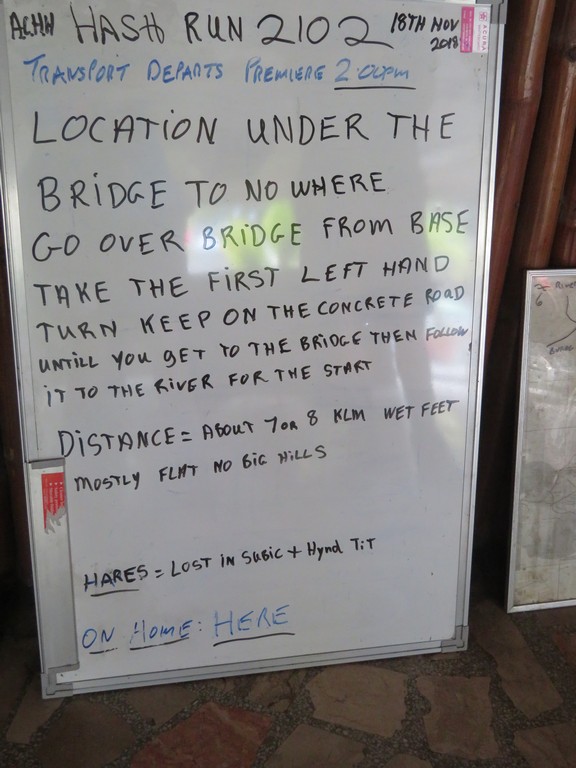 ACHH HASH RUN 2102 18TH NOV 2018
TRANSPORT DEPARTS PREMIERE 2:00pm
LOCATION UNDER THE
BRIDGE TO NO WHERE
GO OVER BRIDGE FROM BASE
TAKE THE FIRST LEFT HAND
TURN KEEP ON THE CONCRETE ROAD
UNTILL YOU GET TO THE BRIDGE THEN FOLLOW
IT TO THE RIVER FOR THE START
DISTANCE = ABOUT 7 OR 8 KLM WET FEET
MOSTLY FLAT NO BIG HILLS
HARES = LOST IN SUBIC + Hynd TiT
ON HOME: HERE
ACURA
RIVER